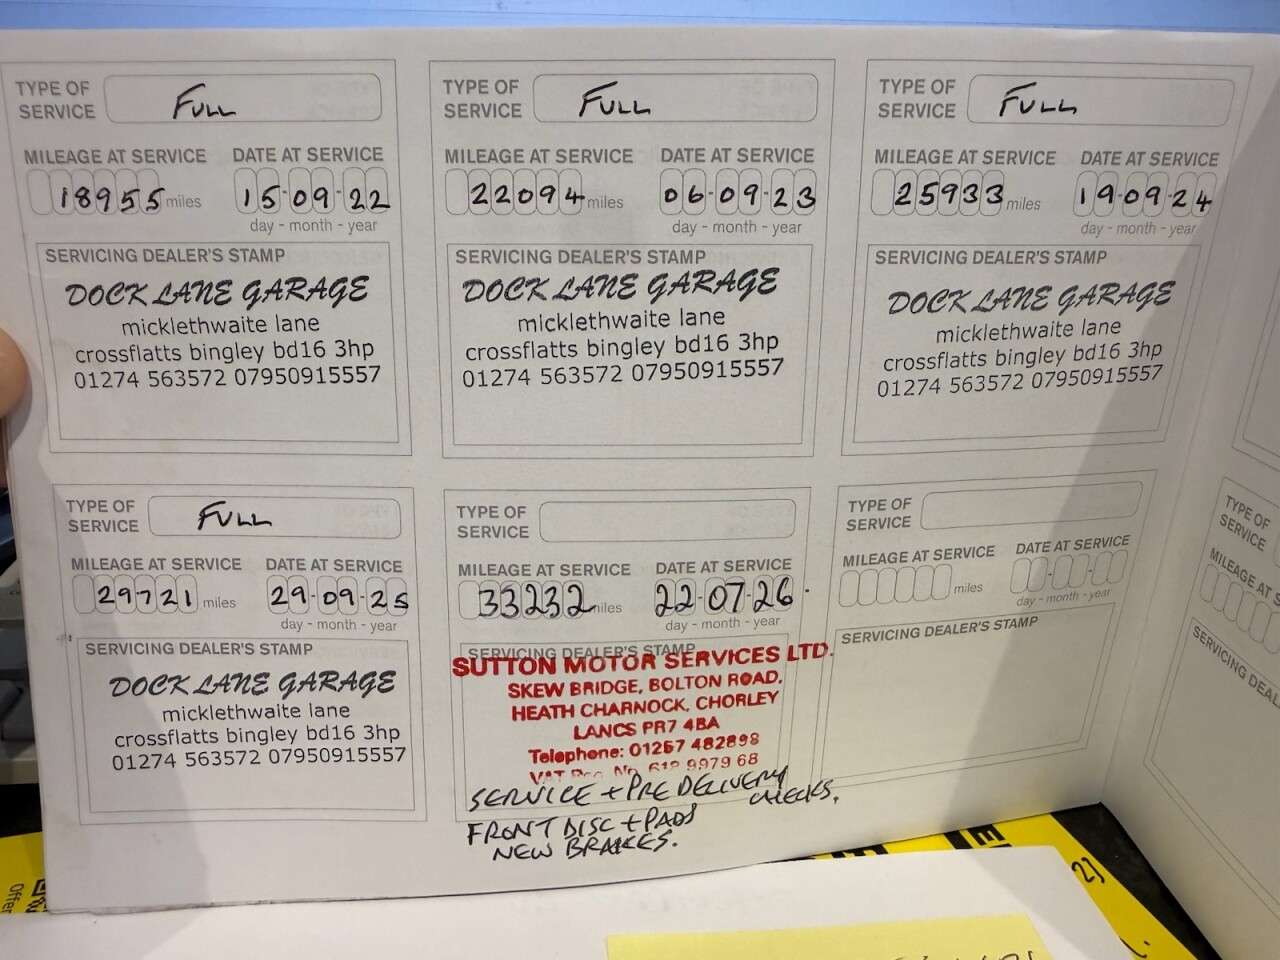 TYPE OF SERVICE FULL
MILEAGE AT SERVICE DATE AT SERVICE
18955 miles 15-09-22
day - month - year
SERVICING DEALER'S STAMP
DOCK LANE GARAGE
micklethwaite lane
crossflatts bingley bd16 3hp
01274 563572 07950915557
TYPE OF SERVICE FULL
MILEAGE AT SERVICE DATE AT SERVICE
22094 miles 06-09-23
day - month - year
SERVICING DEALER'S STAMP
DOCK LANE GARAGE
micklethwaite lane
crossflatts bingley bd16 3hp
01274 563572 07950915557
TYPE OF SERVICE FULL
MILEAGE AT SERVICE DATE AT SERVICE
25933 miles 19-09-24
day - month - year
SERVICING DEALER'S STAMP
DOCK LANE GARAGE
micklethwaite lane
crossflatts bingley bd16 3hp
01274 563572 07950915557
TYPE OF SERVICE FULL
MILEAGE AT SERVICE DATE AT SERVICE
29721 miles 29-09-25
day - month - year
SERVICING DEALER'S STAMP
DOCK LANE GARAGE
micklethwaite lane
crossflatts bingley bd16 3hp
01274 563572 07950915557
TYPE OF SERVICE
MILEAGE AT SERVICE DATE AT SERVICE
33232 miles 22-07-26.
day - month - year
SERVICING DEALER'S STAMP
SUTTON MOTOR SERVICES LTD.
SKEW BRIDGE, BOLTON ROAD,
HEATH CHARNOCK, CHORLEY
LANCS PR7 4BA
Telephone: 01257 482898
VAT Reg. No. 612 9979 68
SERVICE + PRE DELIVERY CHECKS.
FRONT DISC + PADS
NEW BRAKES.
TYPE OF SERVICE
MILEAGE AT SERVICE DATE AT SERVICE
miles
day - month - year
SERVICING DEALER'S STAMP
TYPE OF
SERVICE
MILEAGE AT S
SERVICING DEAL
Offer